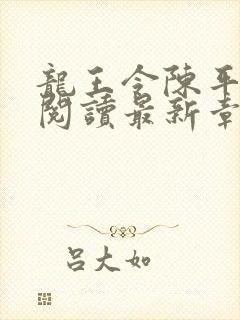 龍王令陳平
閱讀最新章
吕大如